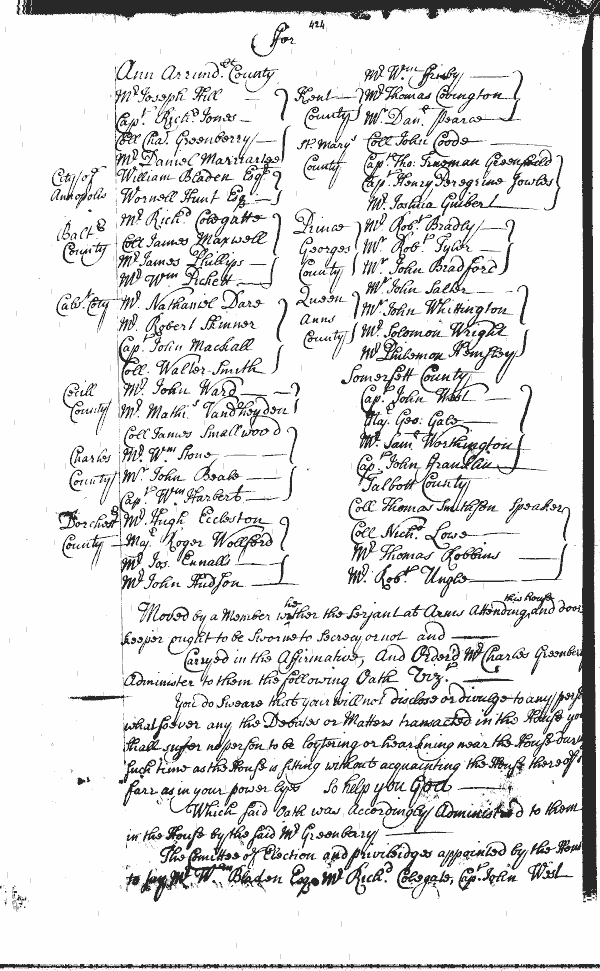 424
ffor
Ann Arrund.ell County
Mr. Joseph Hill
Capt. Richd. Jones
Coll Cha. Greenberry
Mr. Daniel Marriartee
City of Annopolis
William Bladen Esqr.
Wornell Hunt Esqr.
Balt.e County
Mr. Richd. Colegatte
Coll James Maxwell
Mr. James Phillips
Mr. Wm. Pickett
Calvt. Coty
Mr. Nathaniel Dare
Mr. Robert Skinner
Capt. John Mackall
Coll. Walter Smith
Cecill County
Mr. John Ward
Mr. Mathis. Vandrheyden
Coll James Smallwood
Charles County
Mr. Wm. Stone
Mr. John Beale
Capt. Wm. Harbert
Dorchestr. County
Mr. Hugh Eccleston
Majr. Roger Wollford
Mr. Jos. Ennalls
Mr. John Hudson
Kent County
Mr. Wm. Frisby
Mr. Thomas Covington
Mr. Danl. Pearce
St. Marys County
Coll John Coode
Capt. Tho. Trueman Greenfield
Capt. Henry Peregrine Jowles
Mr. Joshua Guibert
Prince Georges County
Mr. Robt. Bradly
Mr. Robt. Tyler
Mr. John Bradford
Queen Anns County
Mr. John Salter
Mr. John Whittington
Mr. Solomon Wright
Mr. Philemon Hemsley
Somersett County
Capt. John West
Maj. Geo: Gale
Mr. Saml. Worthington
Capt. John Franklin
Talbott County
Coll Thomas Smithson Speaker
Coll Nich. Lowe
Mr. Thomas Robbins
Mr. Robt. Ungle
Moved by a Member whether the Serjant at Arms Attending this house and door
keeper ought to be Sworne to Secrecy or not and
Carryed in the Affirmative, And Orderd Mr. Charles Greenberry
Administer to them the following Oath Vizt.
You do Sweare that you will not disclose or divulge to any pers
whatsoever any the Debates or Matters transacted in the House you
shall suffer no person to be loytering or hearkning near the House dur
such time as the House is sitting without acquainting the House thereof
farr as in your power lyes So help you God
Which said Oath was Accordingly Administred to them
in the House by the said Mr. Greenberry
The Comittee of Election and priviledges appointed by the House
to say Mr. Wm. Bladen Esqr. Mr. Richd. Colegate, Capt. John West